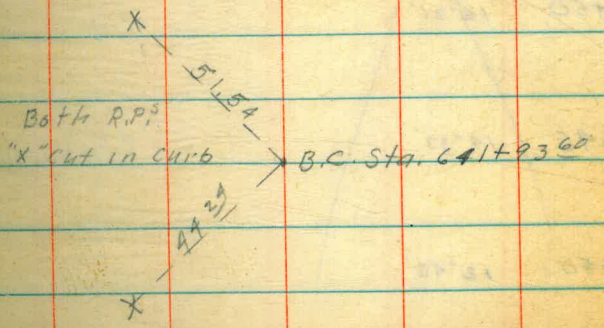 X
51.54
Both R.P.s
"X" cut in curb
B.C. Sta. 641+93 60
44 29
X